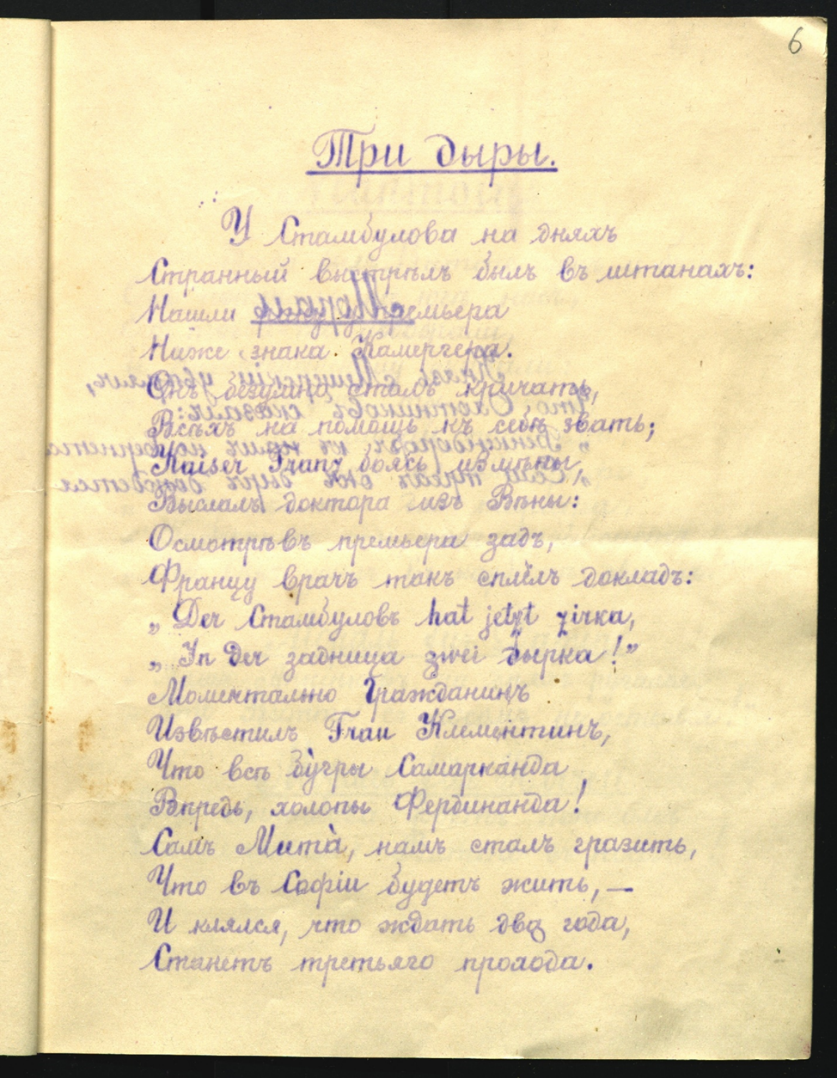 6
Три дыры.
У Стамбулова на дняхъ
Странный выстрѣлъ былъ въ штанахъ:
Нашли у премьера
Ниже знака Камергера.
Онъ безумно сталъ кричать,
Всѣхъ на помощь къ себѣ звать;
Kaiser Franz боясь измѣны
Выслалъ доктора изъ Вѣны:
Осмотрѣвъ премьера задъ,
Францу врачъ такъ сплёлъ докладъ:
„Der Стамбуловъ hat jetzt zirka,
„In Der задница zwei дырка!”
Моментально Гражданинъ
Извѣстилъ Frau Клементинъ,
Что всѣ бу́гры Самарканда
Впредь, холопы Фердинанда!
Самъ Мита̀, намъ сталъ грозить,
Что въ Софіи будетъ жить,—
И клялся, что ждать два года,
Станетъ третьяго прохода.